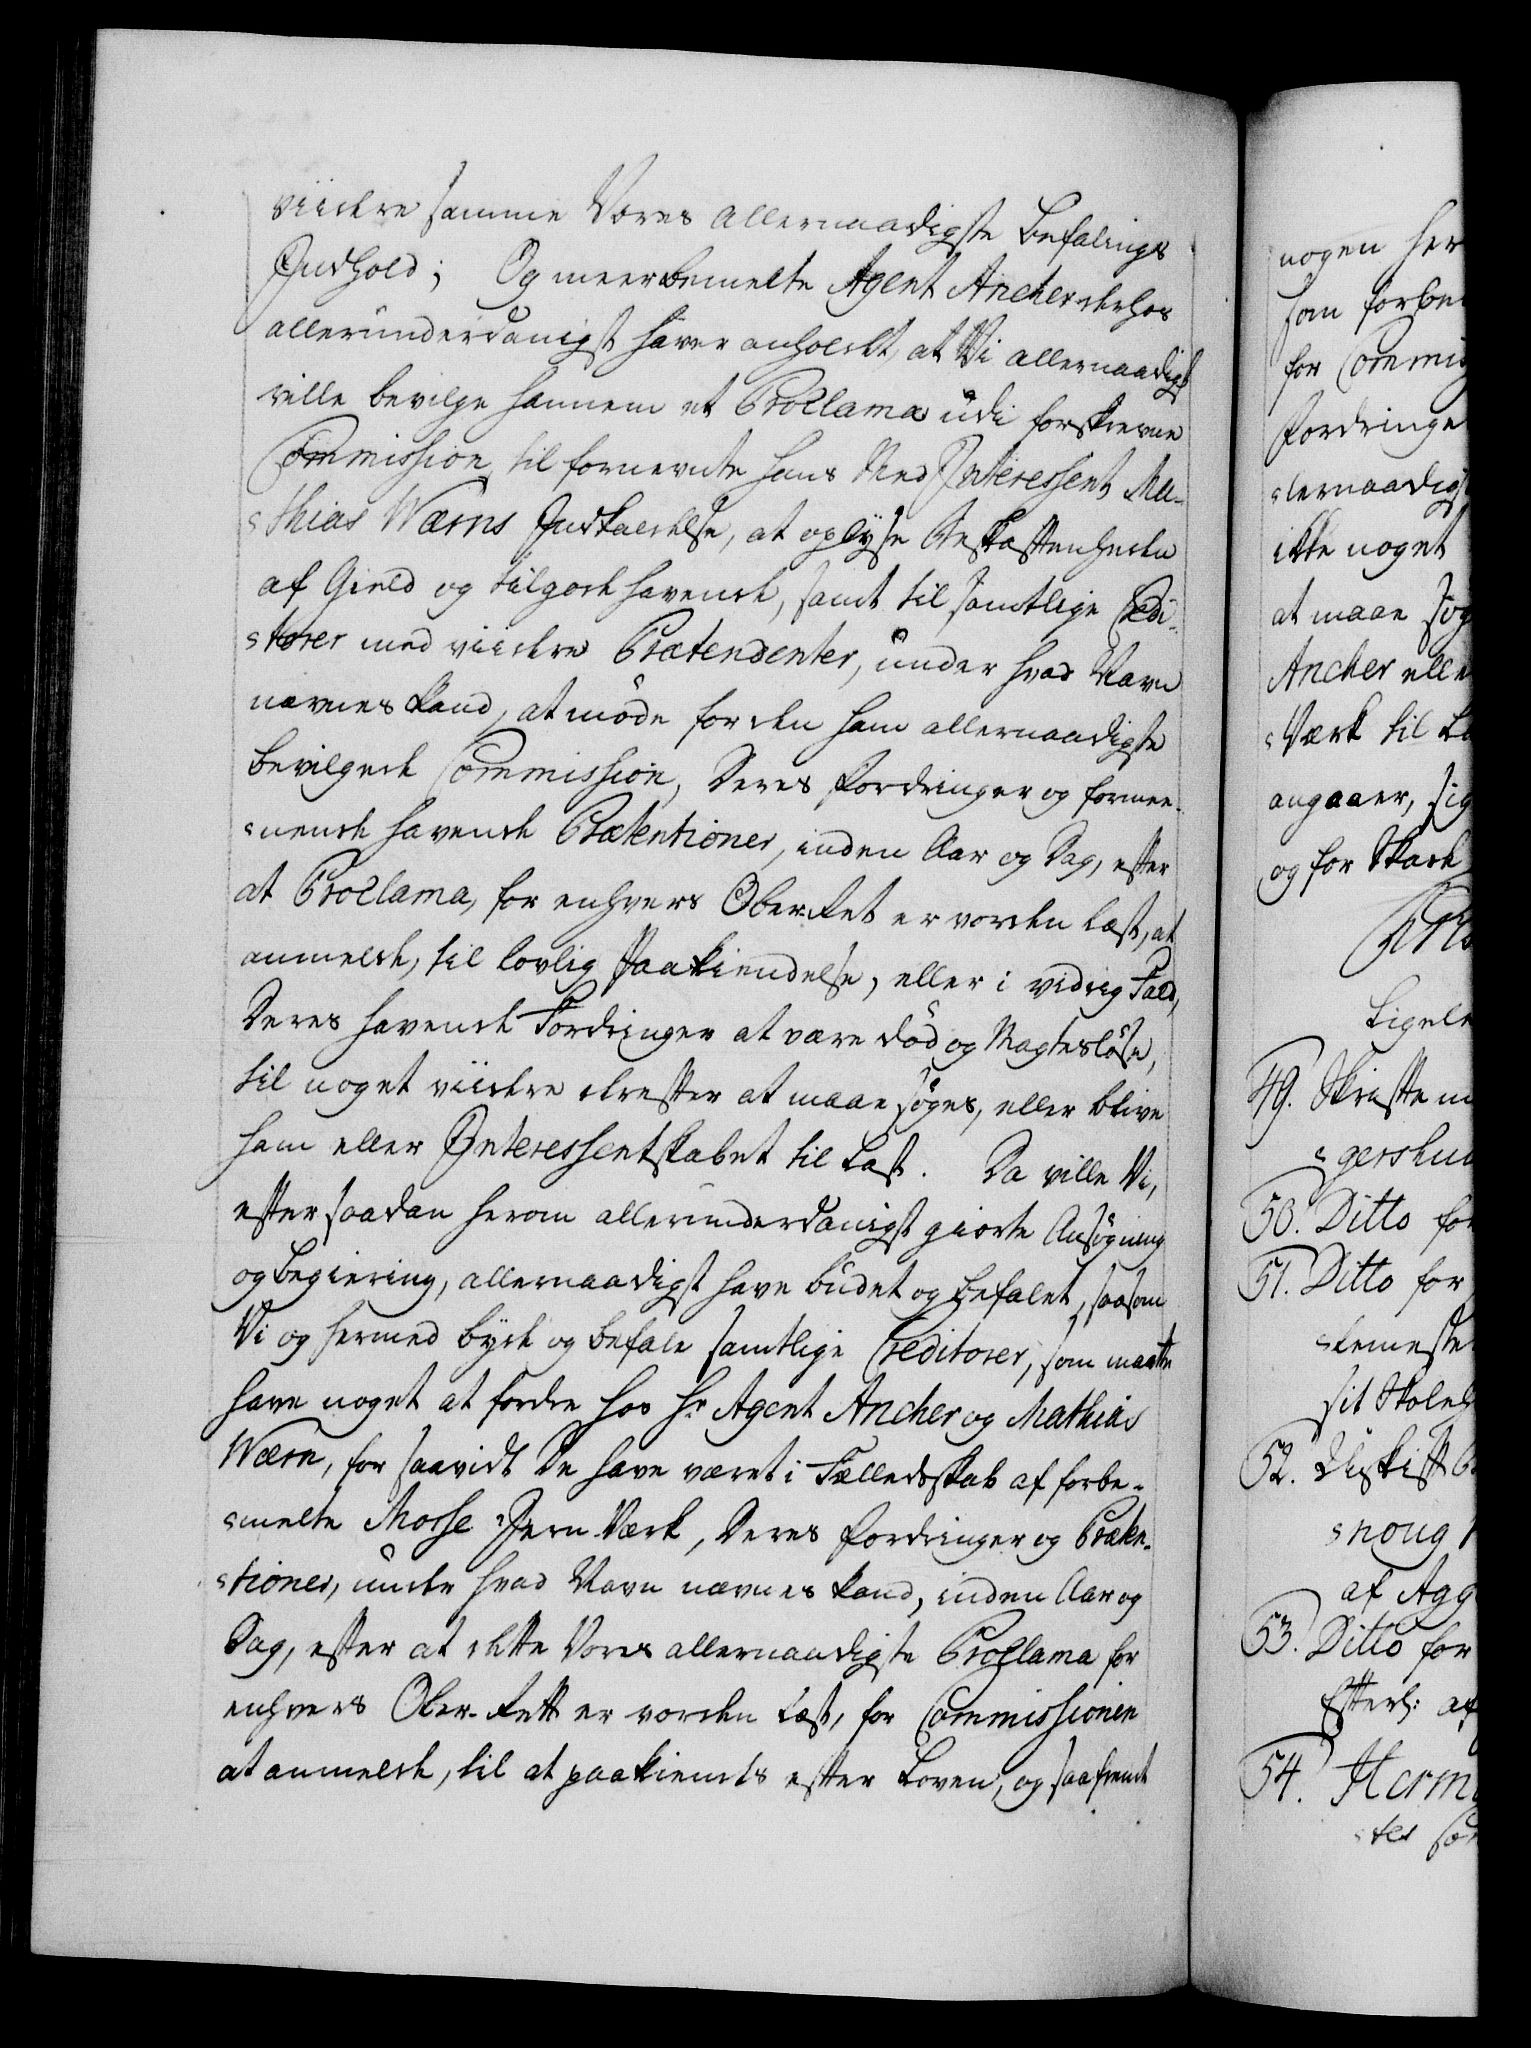 viidere samme Vores allernaadigste Befalings
Indhold; Og meerbemelte Agent Ancher derhos
allerunderdanigst haver anholdet, at Vi allernaadigst
ville bevilge hannem et Proclama udi forskrevne
Commission, til fornevnte hans Med Interessent Ma-
thias Wærns Indkaldelse, at oplyse Beskaffenheden
af Gield og tilgodehavende, samt til samtlige Credi-
torer med viidere Prætendenter, under hvad Navn
nævnes kand, at møde for den ham allernaadigste
bevilgede Commission, Deres Fordringer og formee-
nende havende Prætentioner, inden Aar og Dag, efter
at Proclama, for enhvers Ober-Ret er vorden læst, at
anmelde, til lovlig Paakiendelse, eller i vidrig Fald,
Deres havende Fordringer at være død og Magtesløse,
til noget viidere derefter at maae søges, eller blive
ham eller Interessentskabet til Last. Da ville Vi,
efter saadan herom allerunderdanigst giorte Ansøgning
og begiering, allernaadigst have budet og befalet, saasom
Vi og hermed byde og befale samtlige Creditorer, som maatte
have noget at fordre hos Hr Agent Ancher og Mathias
Wærn, for saavidt De have været i Fælledsskab af forbe-
melte Mosse Jern-Værk, Deres Fordringer og Præten-
tioner, under hvad Navn nævnes kand, inden Aar og
Dag, efter at dette Vores allernaadigste Proclama for
enhvers Ober-Rett er vorden læst, for Commissionen
at anmelde, til at paakiendes efter Loven, og saafremt
nogen her
som forbe
for Commis
Fordringe
lernaadigst
ikke noget
at maae søg
Ancher elle
Værk til La
angaaer, sig
og for Skade
Ligele
49. Skrifte
gershu
50. Ditto for
51. Ditto for
lemeste
sit Skoleh
52.
noug
af Agg
53. Ditto for
Efterl: af
54. Herm
tes